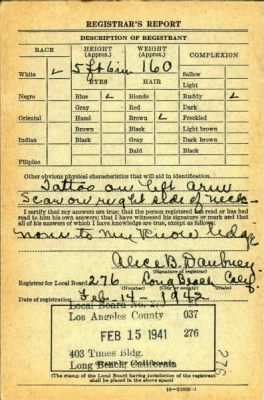 REGISTRAR'S REPORT
DESCRIPTION OF REGISTRANT
RACE HEIGHT (Approx.) WEIGHT (Approx.) COMPLEXION
5 ft 6 in 160
White ✓ EYES HAIR Sallow
Light
Negro Blue ✓ Blonde Ruddy ✓
Gray Red Dark
Oriental Hazel Brown ✓ Freckled
Brown Black Light brown
Indian Black Gray Dark brown
Bald Black
Filipino
Other obvious physical characteristics that will aid in identification
Tattoo on left arm
Scar on right side of neck
I certify that my answers are true; that the person registered has read or has had
read to him his own answers; that I have witnessed his signature or mark and that
all of his answers of which I have knowledge are true, except as follows:
none to my know ledge
Alice B. Daubney
(Signature of registrar)
Registrar for Local Board 276 Long Beach Calif
(Number) (City or county) (State)
Date of registration Feb-14-1942
Local Board No.
Los Angeles County 037
FEB 15 1941 276
403 Times Bldg.
Long Beach, California
276
(The stamp of the Local Board having jurisdiction of the registrant
shall be placed in the above space)